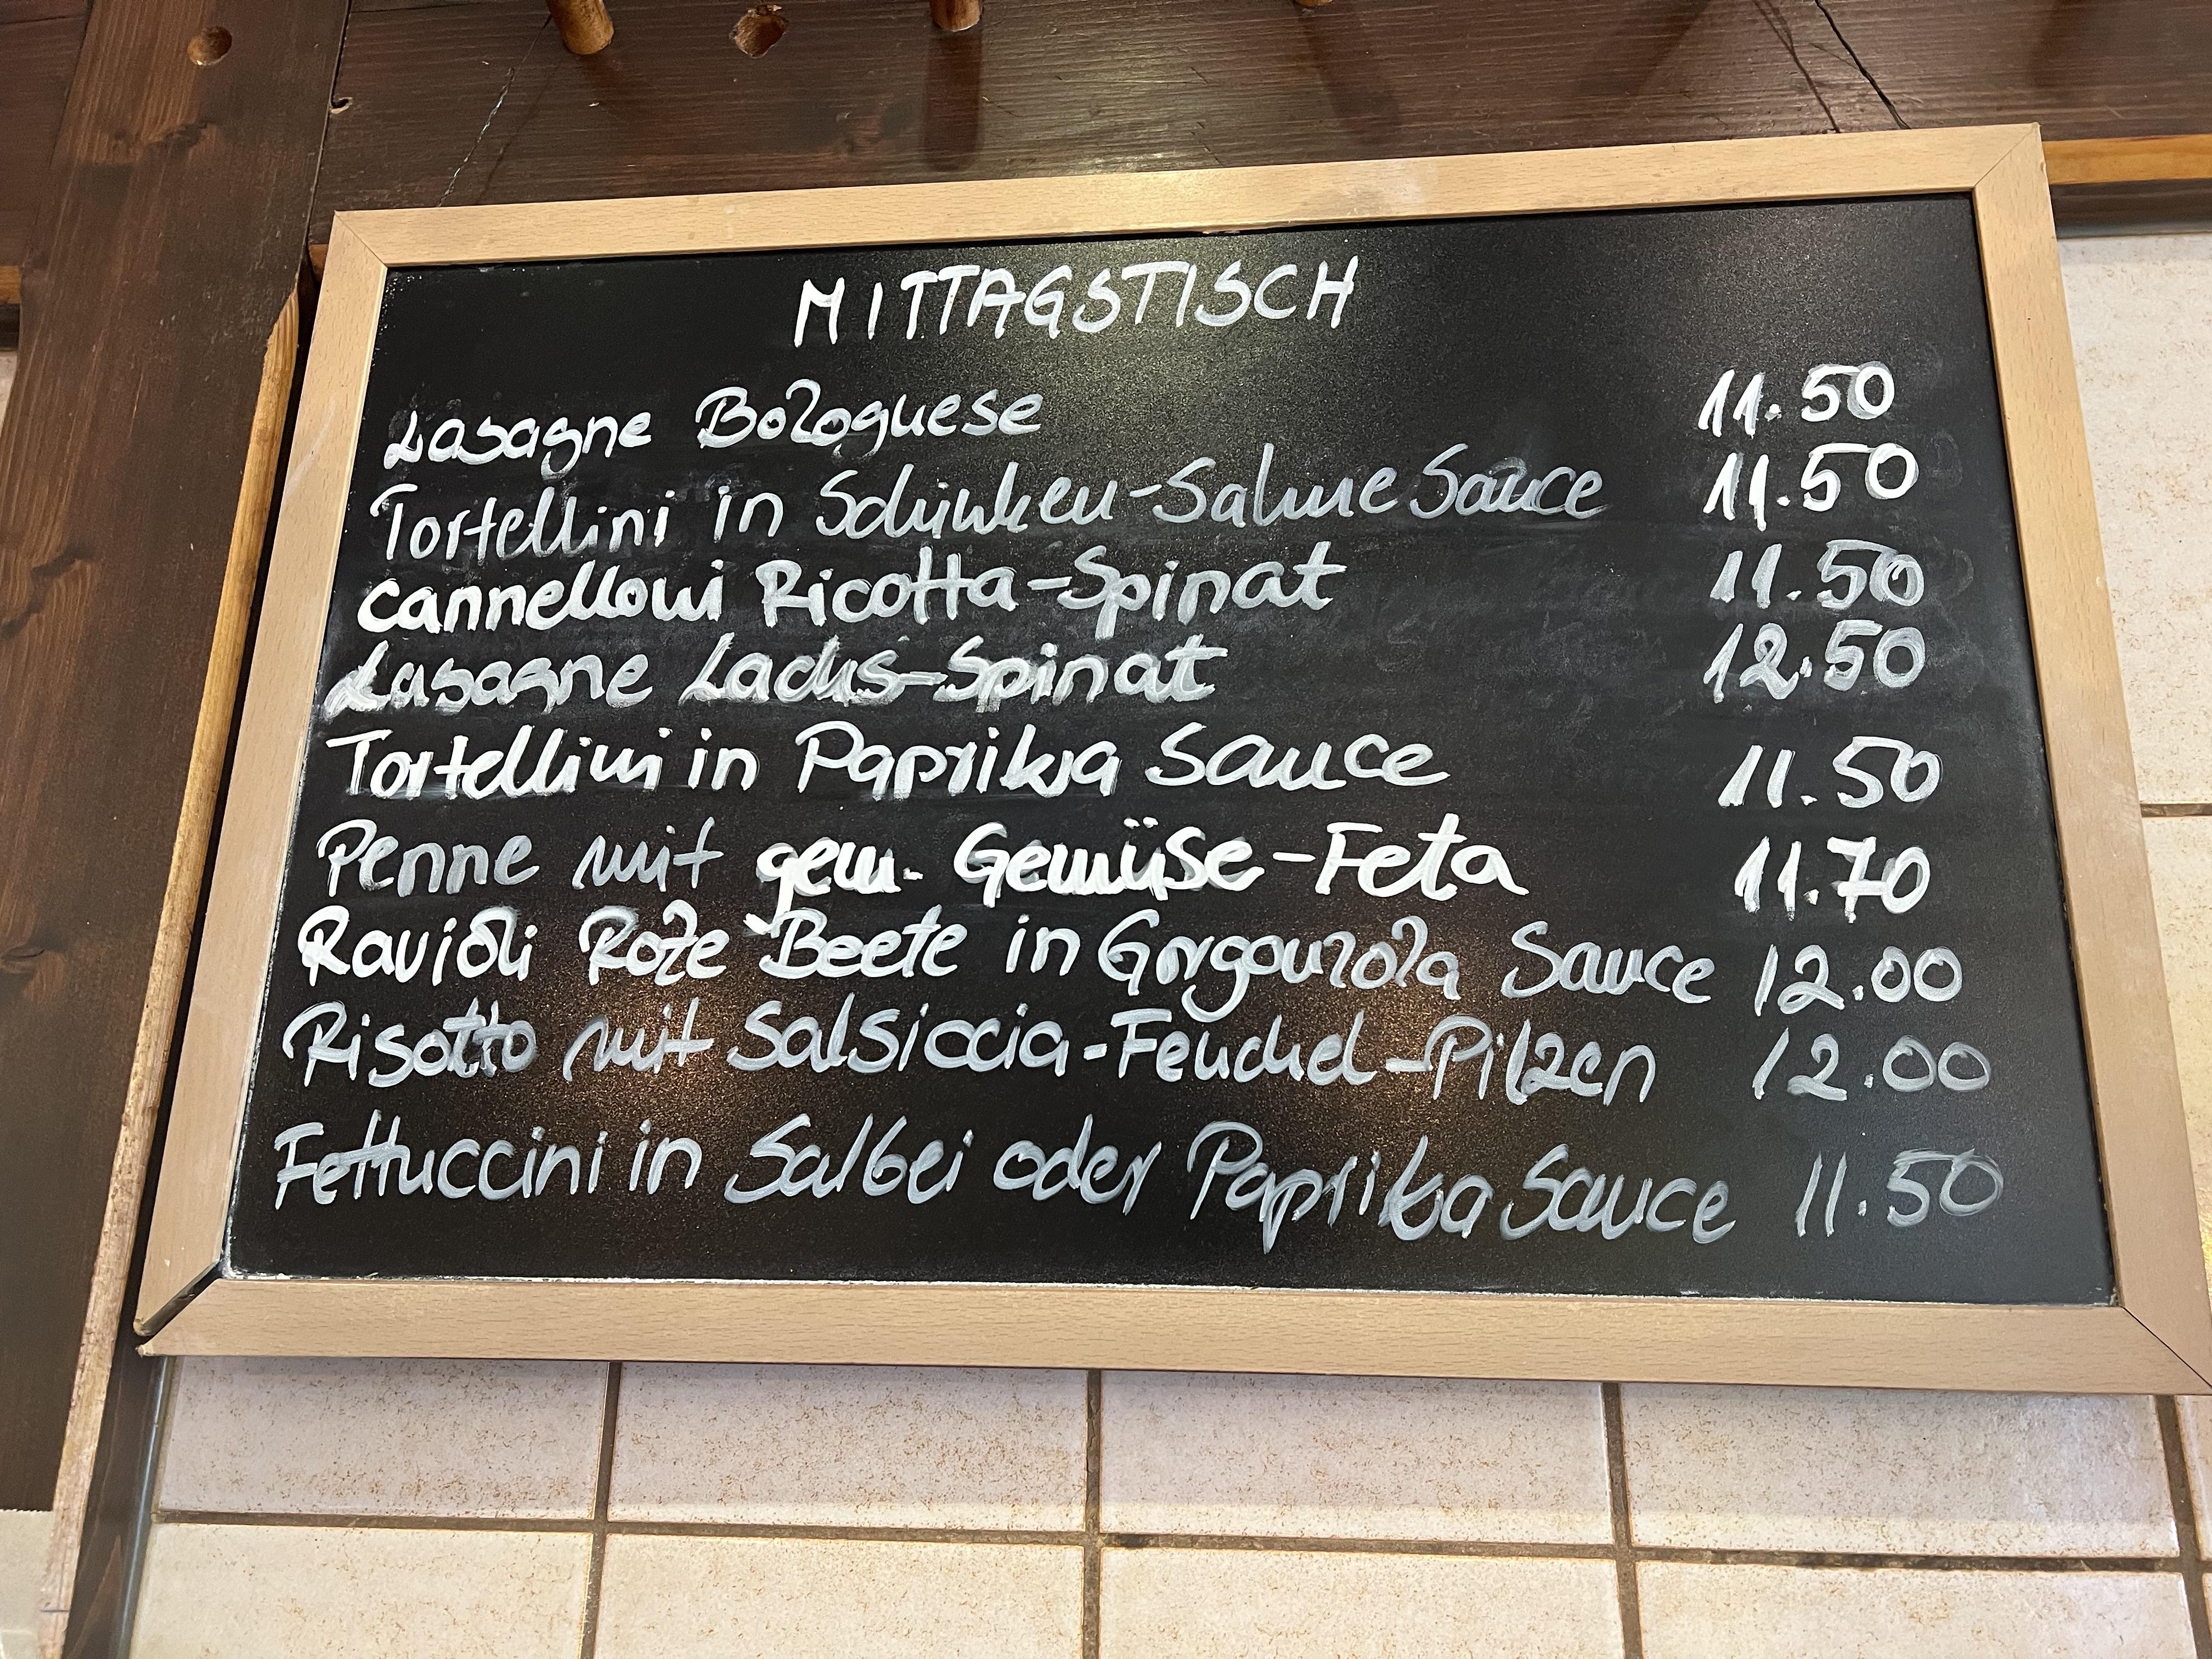 MITTAGSTISCH
Lasagne Bolognese 11.50
Tortellini in Schinken-Sahne Sauce 11.50
Cannelloni Ricotta-Spinat 11.50
Lasagne Lachs-Spinat 12.50
Tortellini in Paprika Sauce 11.50
Penne mit gem. Gemüse-Feta 11.70
Ravioli Rote Beete in Gorgonzola Sauce 12.00
Risotto mit Salsiccia-Fenchel-Pilzen 12.00
Fettuccini in Salbei oder Paprika Sauce 11.50